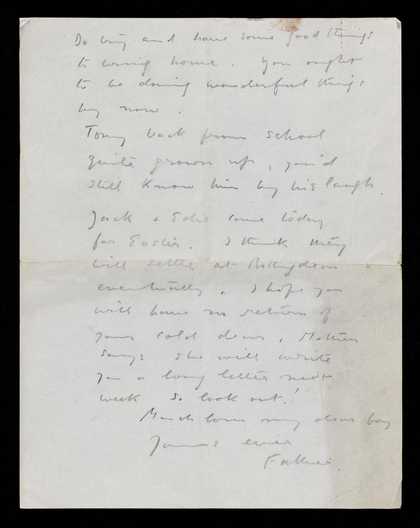 Do try and have some good things
to bring home. You ought
to be doing wonderful things
by now.
Tony back from school
quite grown up, you'd
still know him by his laugh.
Jack & Edie come today
for Easter. I think they
will settle at Rottingdean
eventually. I hope you
will have no return of
your cold dear, Mother
says she will write
you a long letter next
week so look out!
Much love my dear boy
Yours ever
Father.